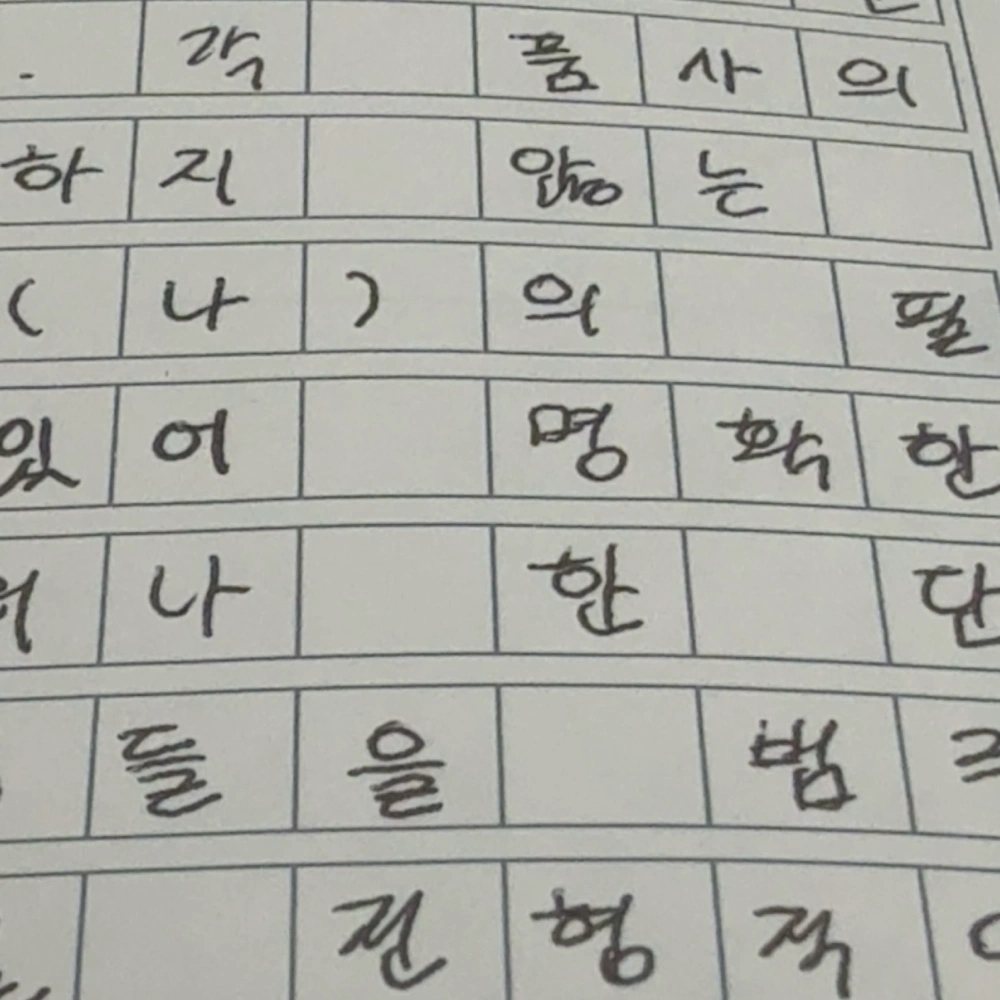 . 각 품사의
하지 않는
(나)의 필
있어 명확한
나 한 단
들을 범
전형적